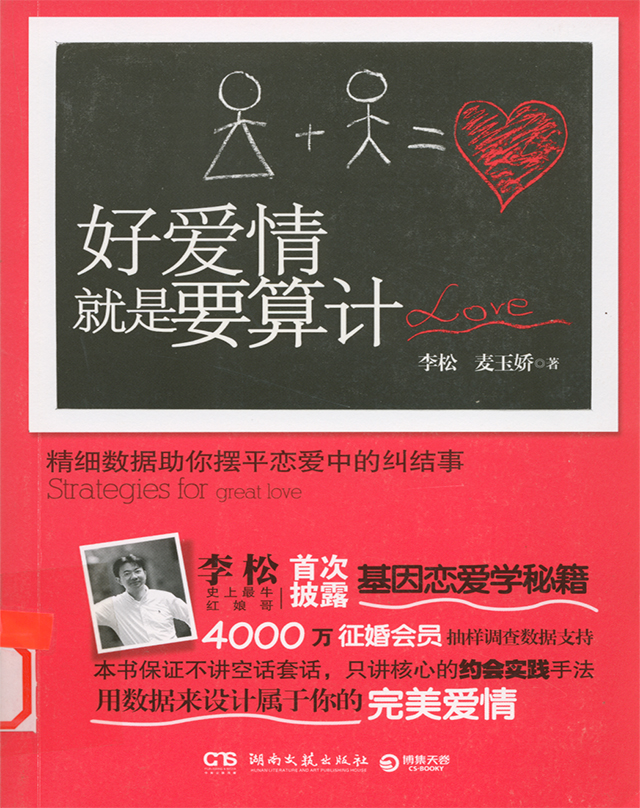 好爱情
就是要算计
Love
李松 麦玉娇◎著
精细数据助你摆平恋爱中的纠结事
Strategies for great love
李松
史上最牛
红娘哥
首次
披露
基因恋爱学秘籍
4000万征婚会员 抽样调查数据支持
本书保证不讲空话套话，只讲核心的约会实践手法
用数据来设计属于你的完美爱情
湖南文艺出版社
HUNAN LITERATURE AND ART PUBLISHING HOUSE
博集天卷
CS-BOOKY